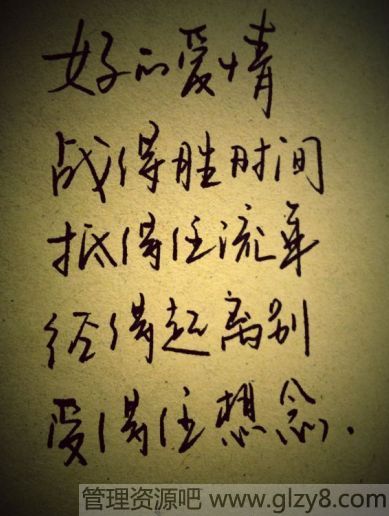 好的爱情
战得胜时间
抵得住流年
经得起离别
受得住想念.
管理资源吧 www.glzy8.com